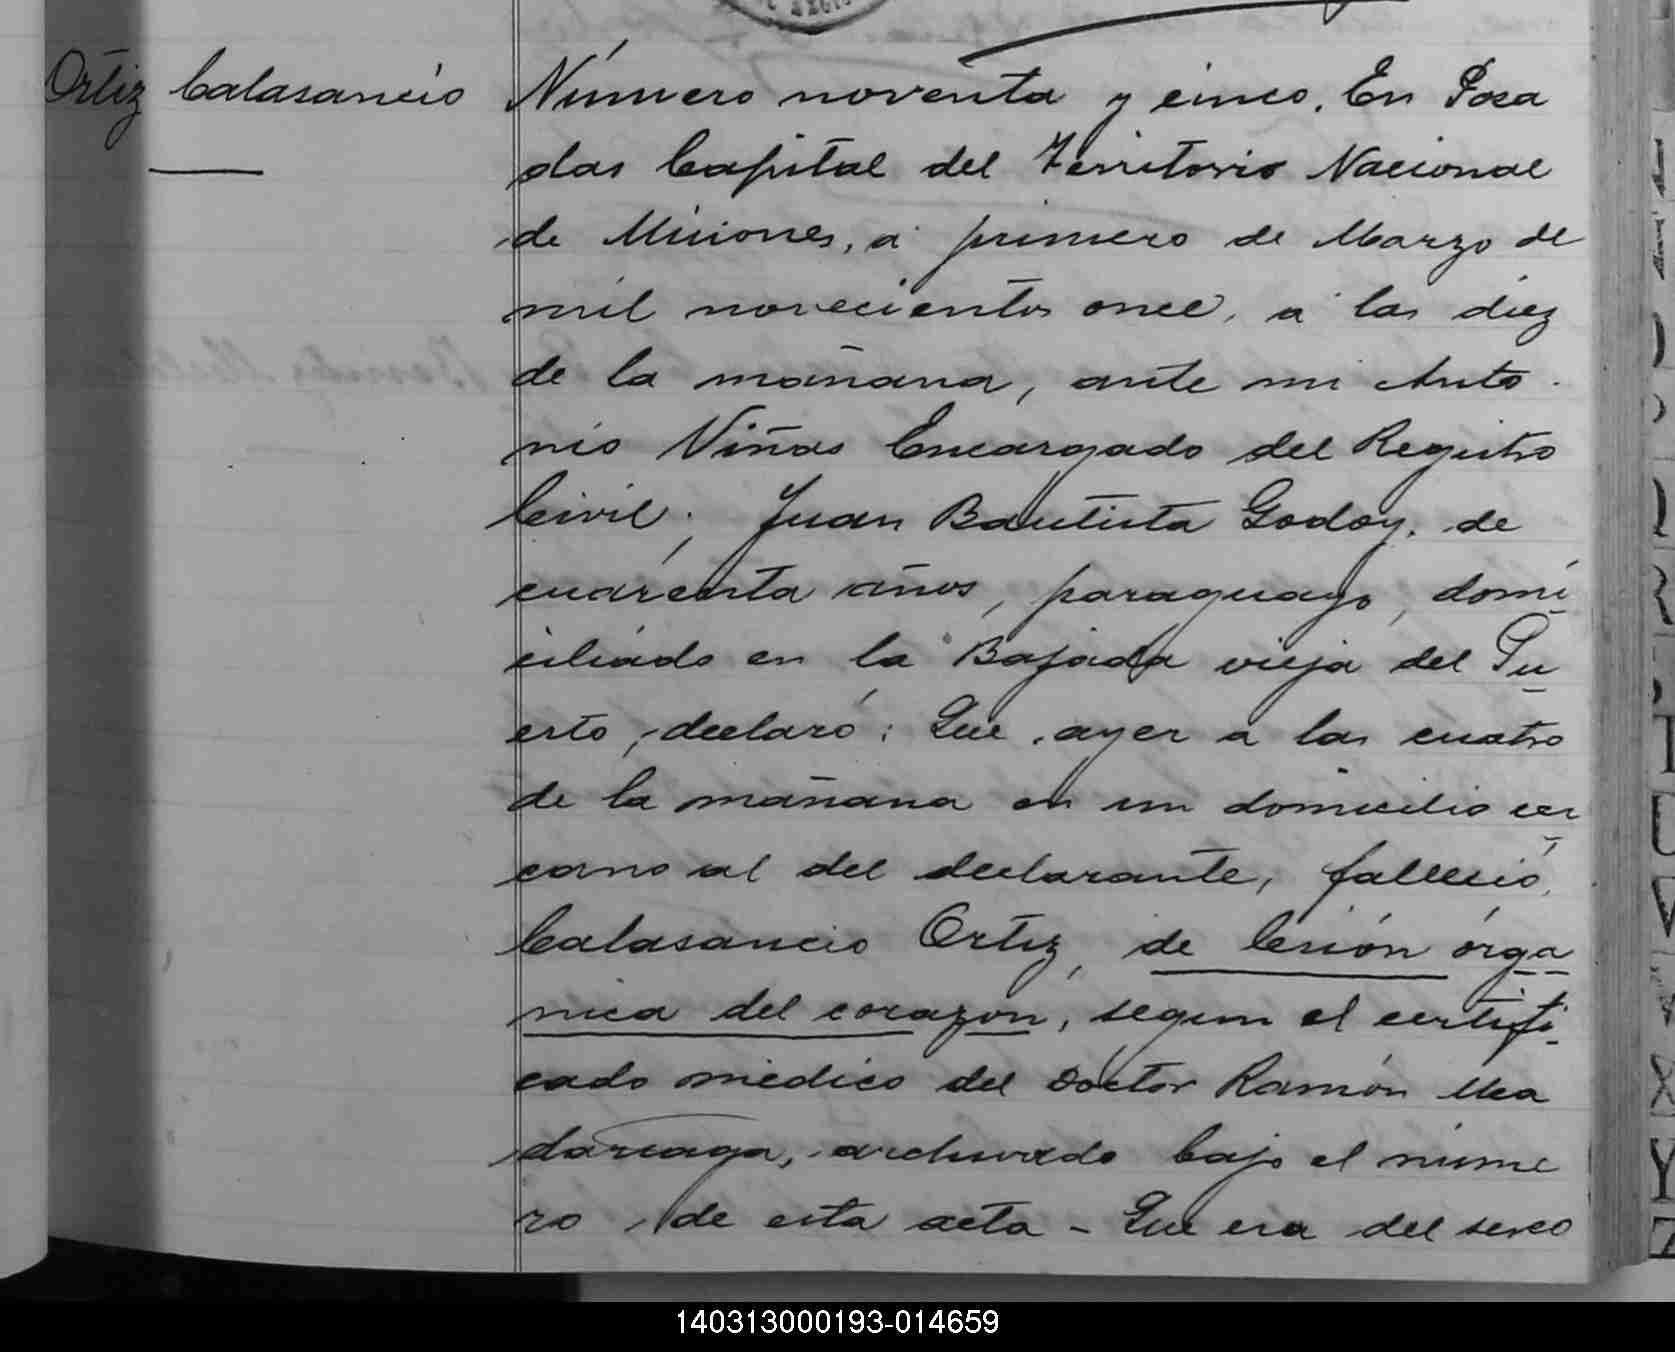 Ortiz Calasancio
Número noventa y cinco. En Posa
das Capital del Territorio Nacional
de Misiones, a primero de Marzo de
mil novecientos once, a las diez
de la mañana, ante mi Anto
nio Viñas Encargado del Registro
Civil; Juan Bautista Godoy, de
cuarenta años, paraguayo, domi
ciliado en la Bajada vieja del Pu
erto, declaró: Que, ayer a las cuatro
de la mañana en un domicilio cer
cano al del declarante, falleció
Calasancio Ortiz, de lesión órga
nica del corazon, segun el certifi
cado médico del Doctor Ramón Ma
dariaga, archivado bajo el núme
ro, de esta acta - Que era del sexo
140313000193-014659